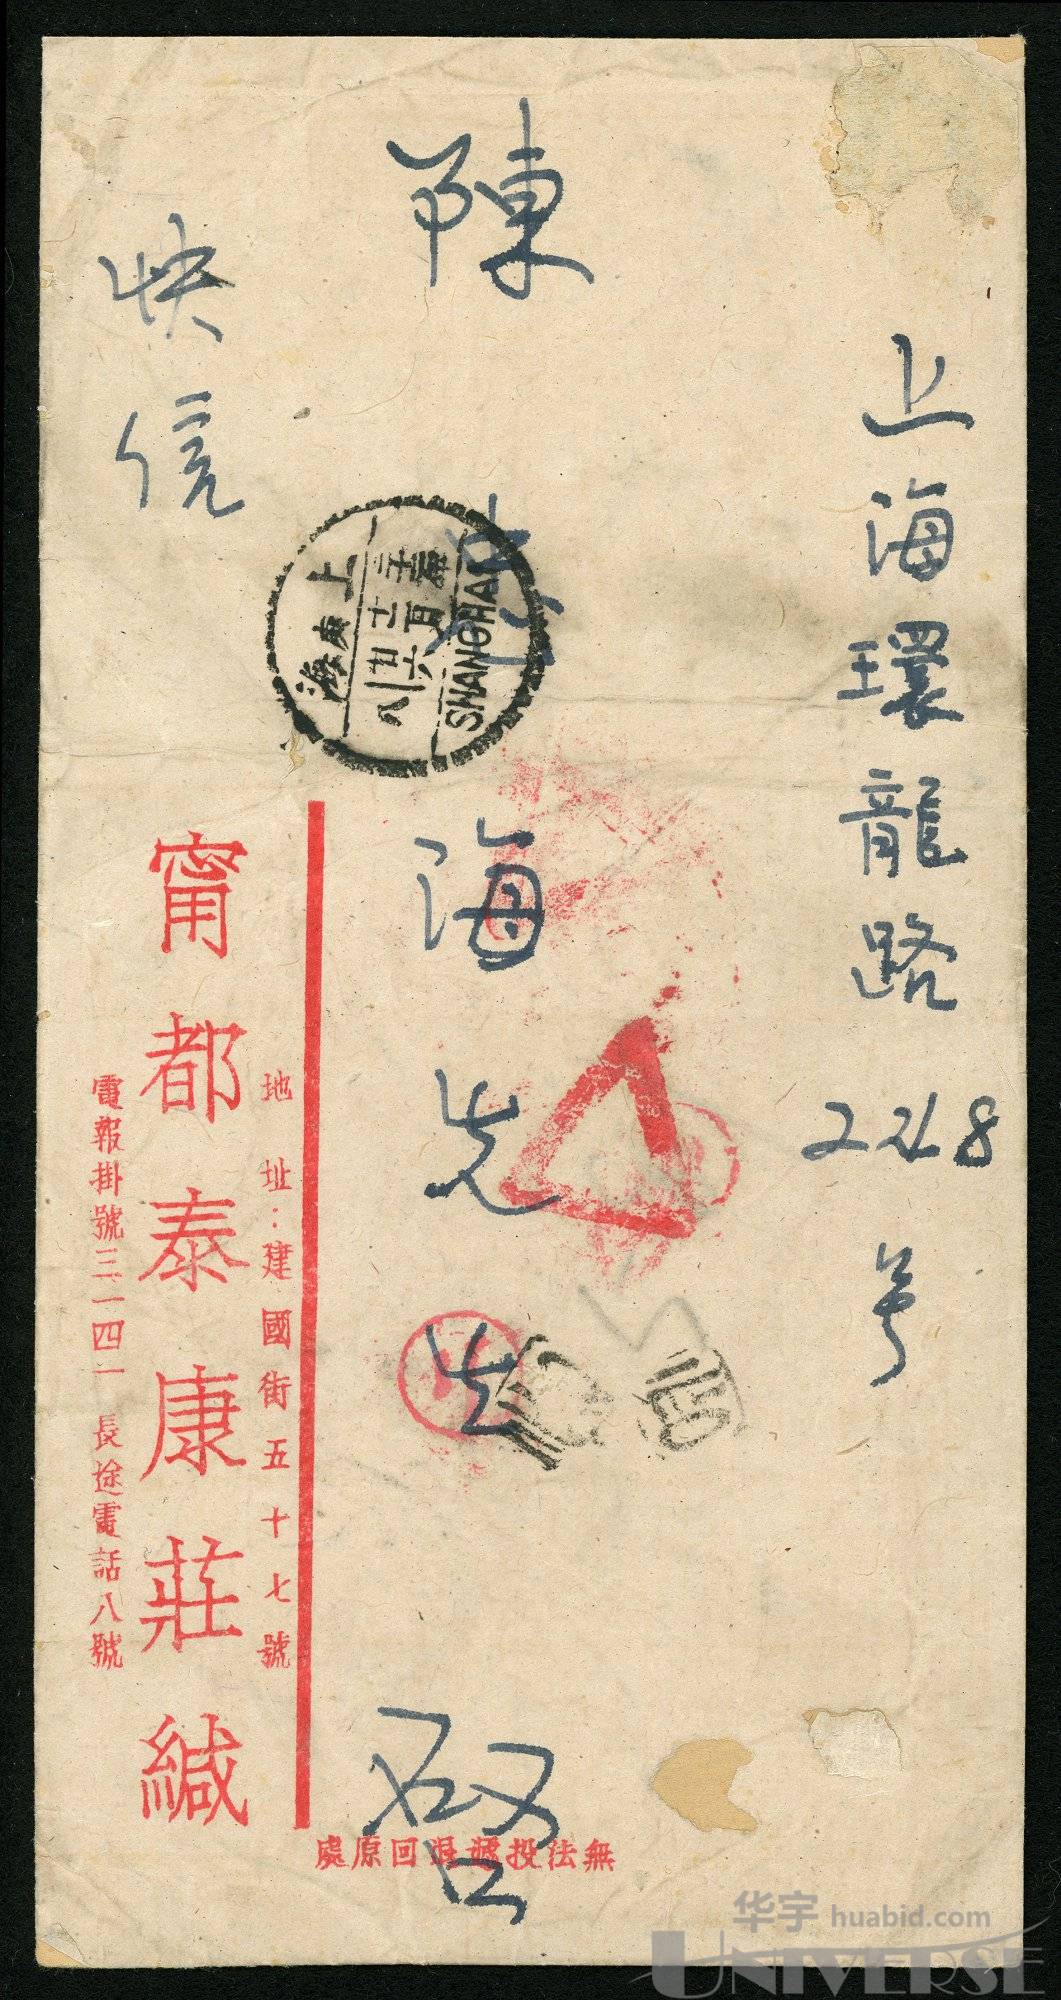 上海環龍路228号
陳
海先生
啓
快信
地址：建國街五十七號
甯都泰康莊緘
電報掛號三一四一 長途電話八號
無法投遞退回原處
上海
SHANGHAI
华宇 huabid.com
UNIVERSE